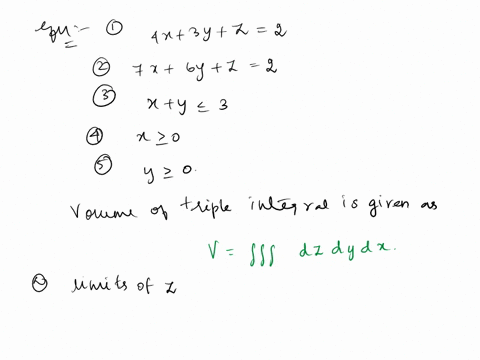 eqn:- ① 4x+3y+z=2
② 7x+6y+z=2
③ x+y≤3
④ x≥0
⑤ y≥0.
Volume of triple integral is given as
V= ∫∫∫ dz dy dx.
limits of z